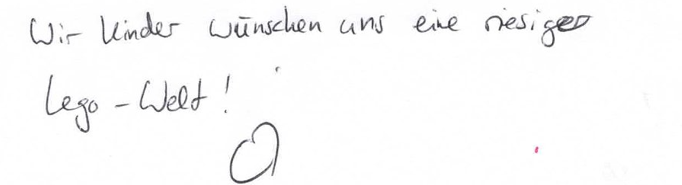 Wir Kinder wünschen uns eine riesige
Lego-Welt!